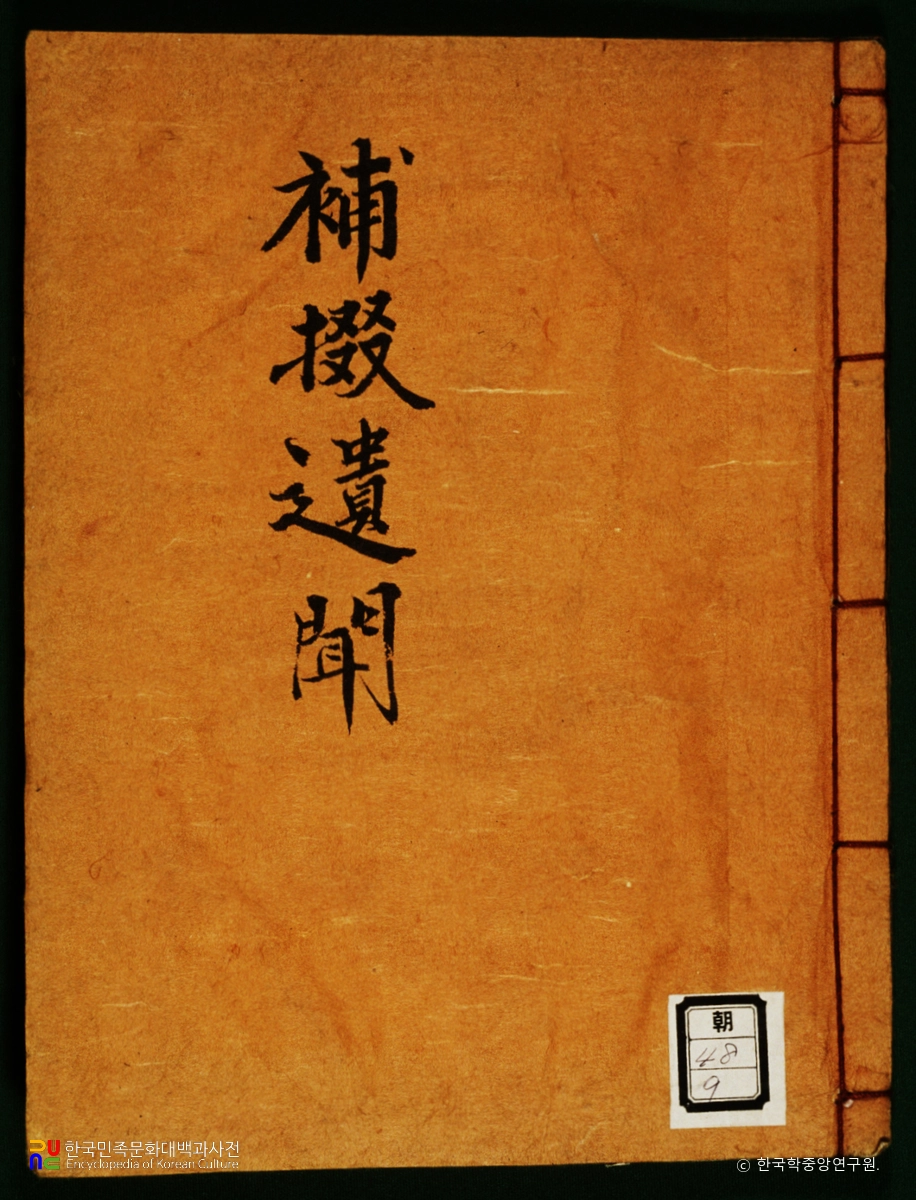 補掇遺聞
朝
48
9
한국민족문화대백과사전
Encyclopedia of Korean Culture
ⓒ 한국학중앙연구원.